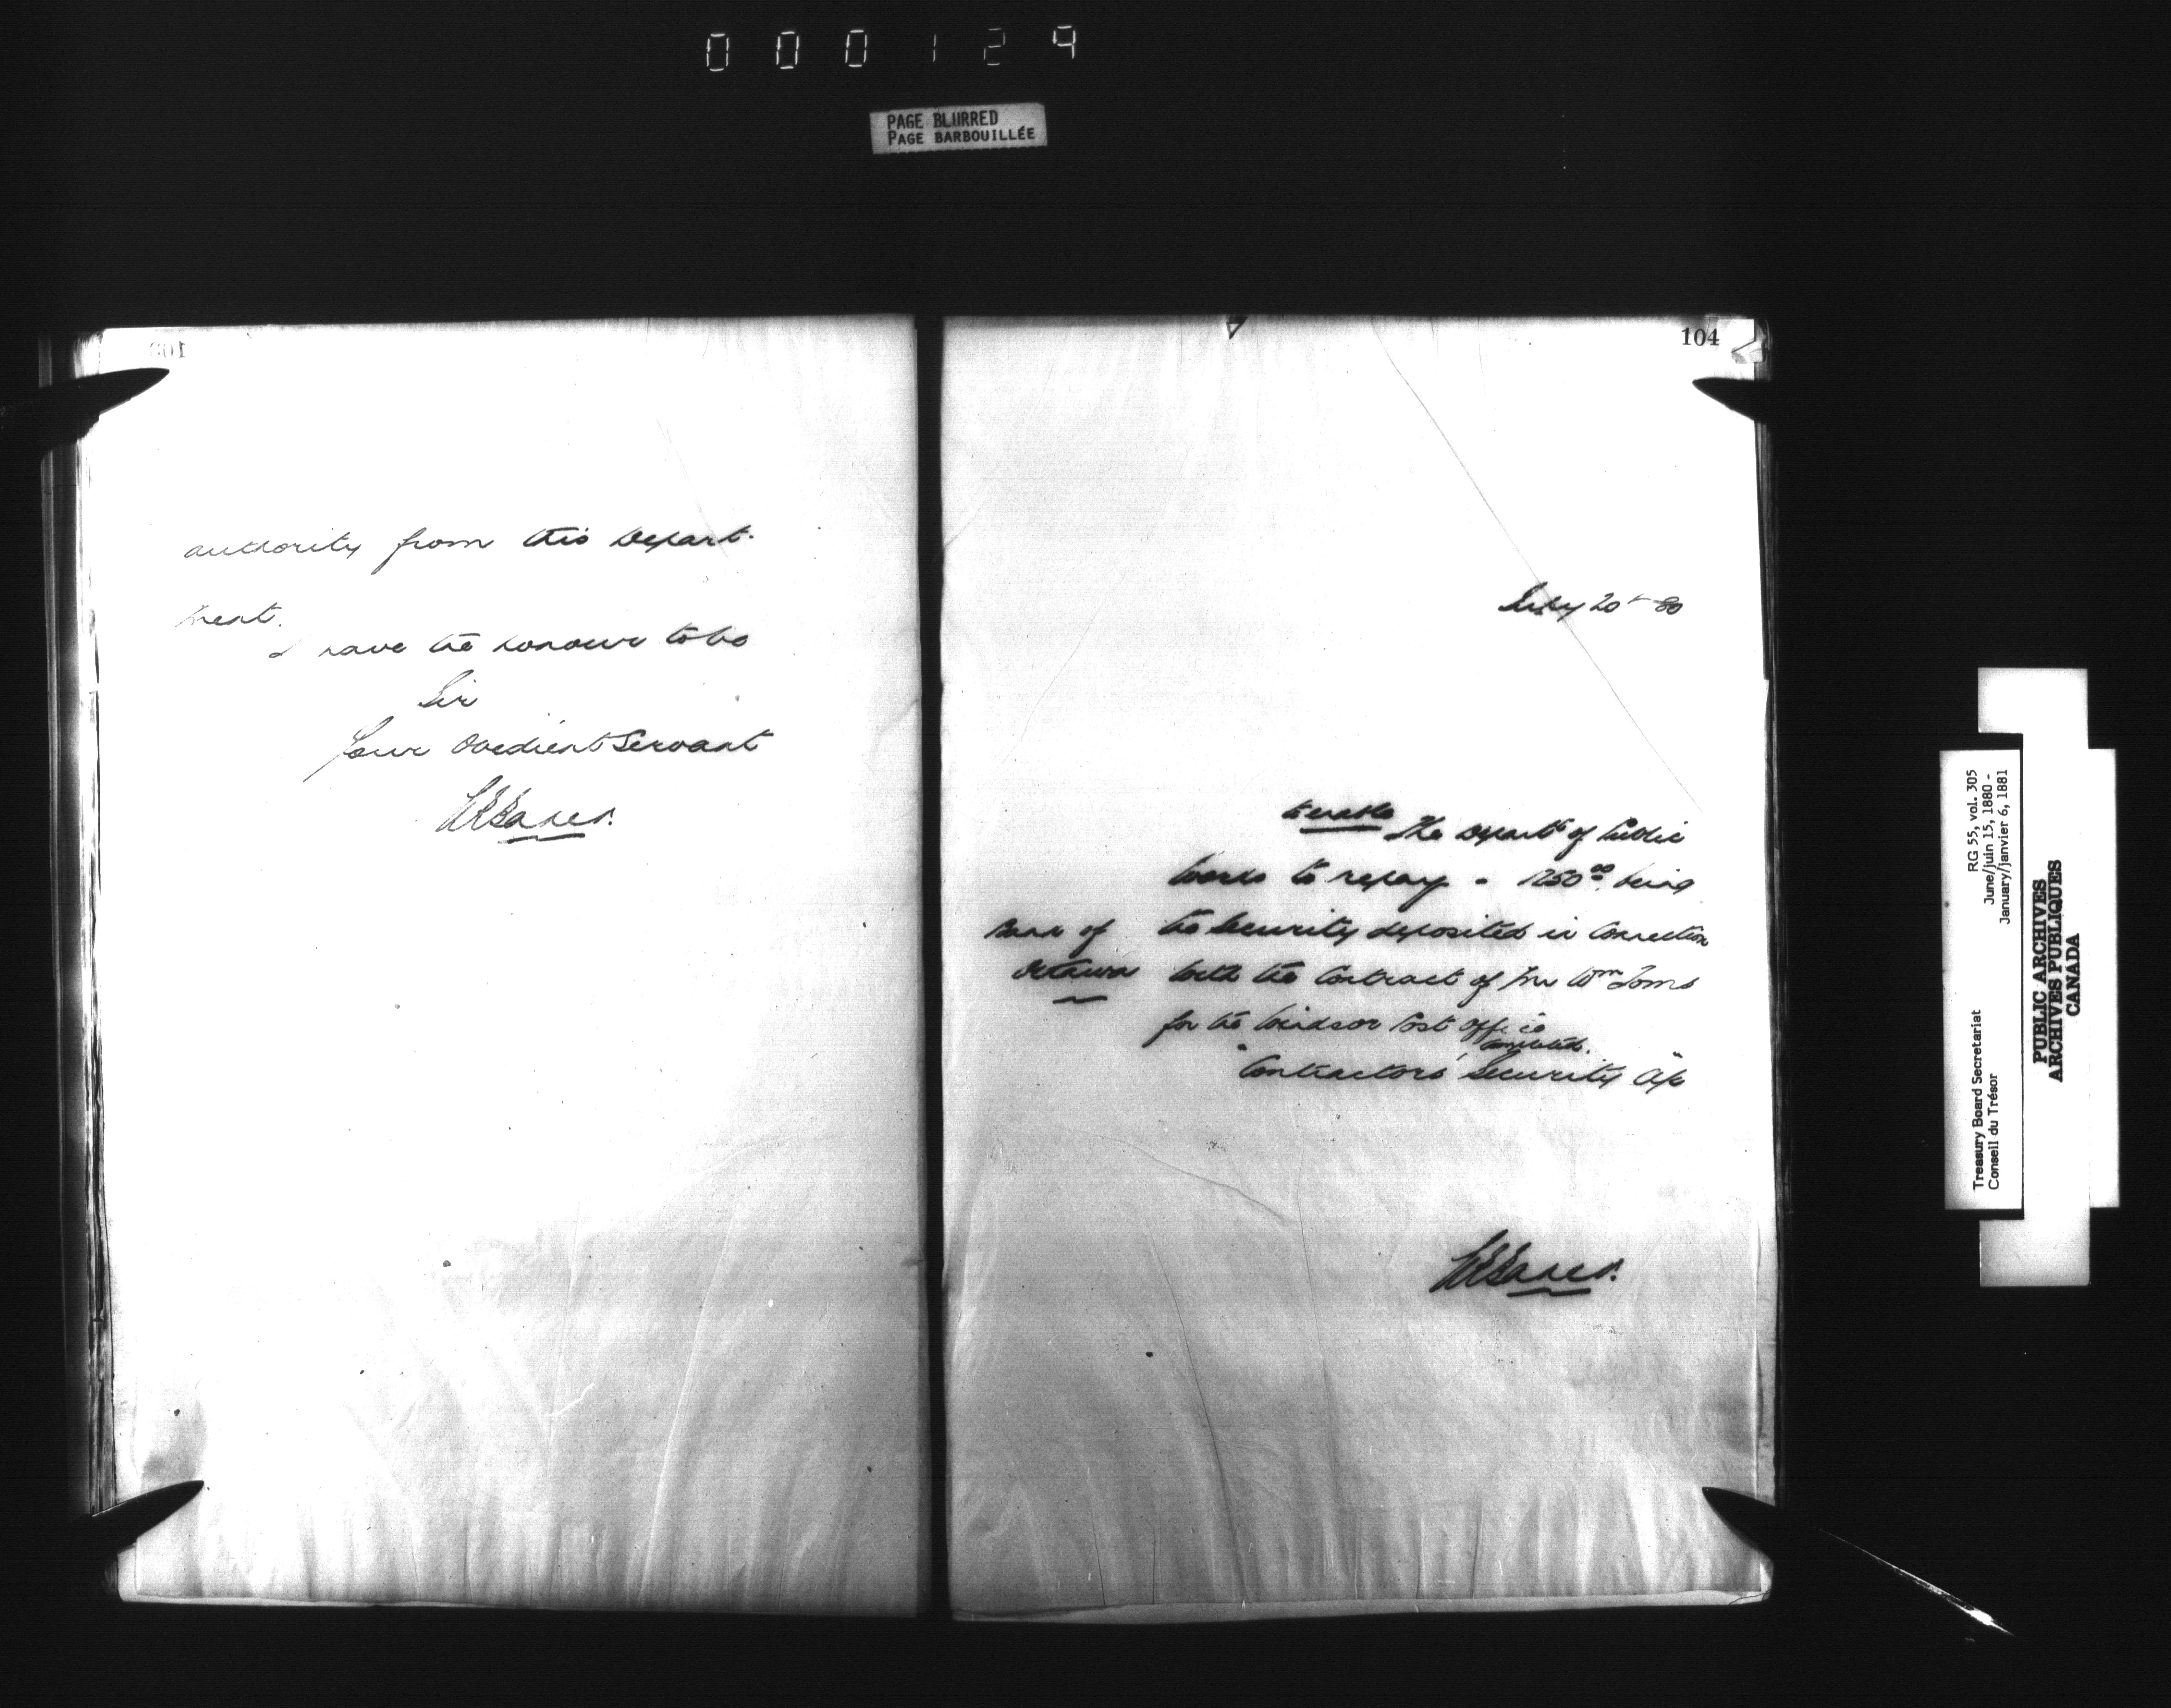 000129
PAGE BLURRED
PAGE BARBOUILLÉE
103
authority from this Depart-
ment.
I have the honour to be
Sir
Your Obedient Servant
104
July 20th 80
to enable
The Depart of Public
Works to repay - 1250 00 being
the Security deposited in Connection
Bank of
Ottawa
with the Contract of Mr Wm Toms
for the Windsor Post Office
completed.
"Contractors' Security A/c"
RG 55, vol. 305
June/juin 15, 1880 -
January/janvier 6, 1881
Treasury Board Secretariat
Conseil du Trésor
PUBLIC ARCHIVES
ARCHIVES PUBLIQUES
CANADA